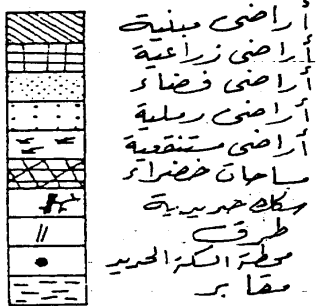 أراضى مبنية
أراضى زراعية
أراضى فضاء
أراضى رملية
أراضى مستنقعية
مساحات خضراء
سكك حديدية
طرق
محطة السكة الحديد
مقابر